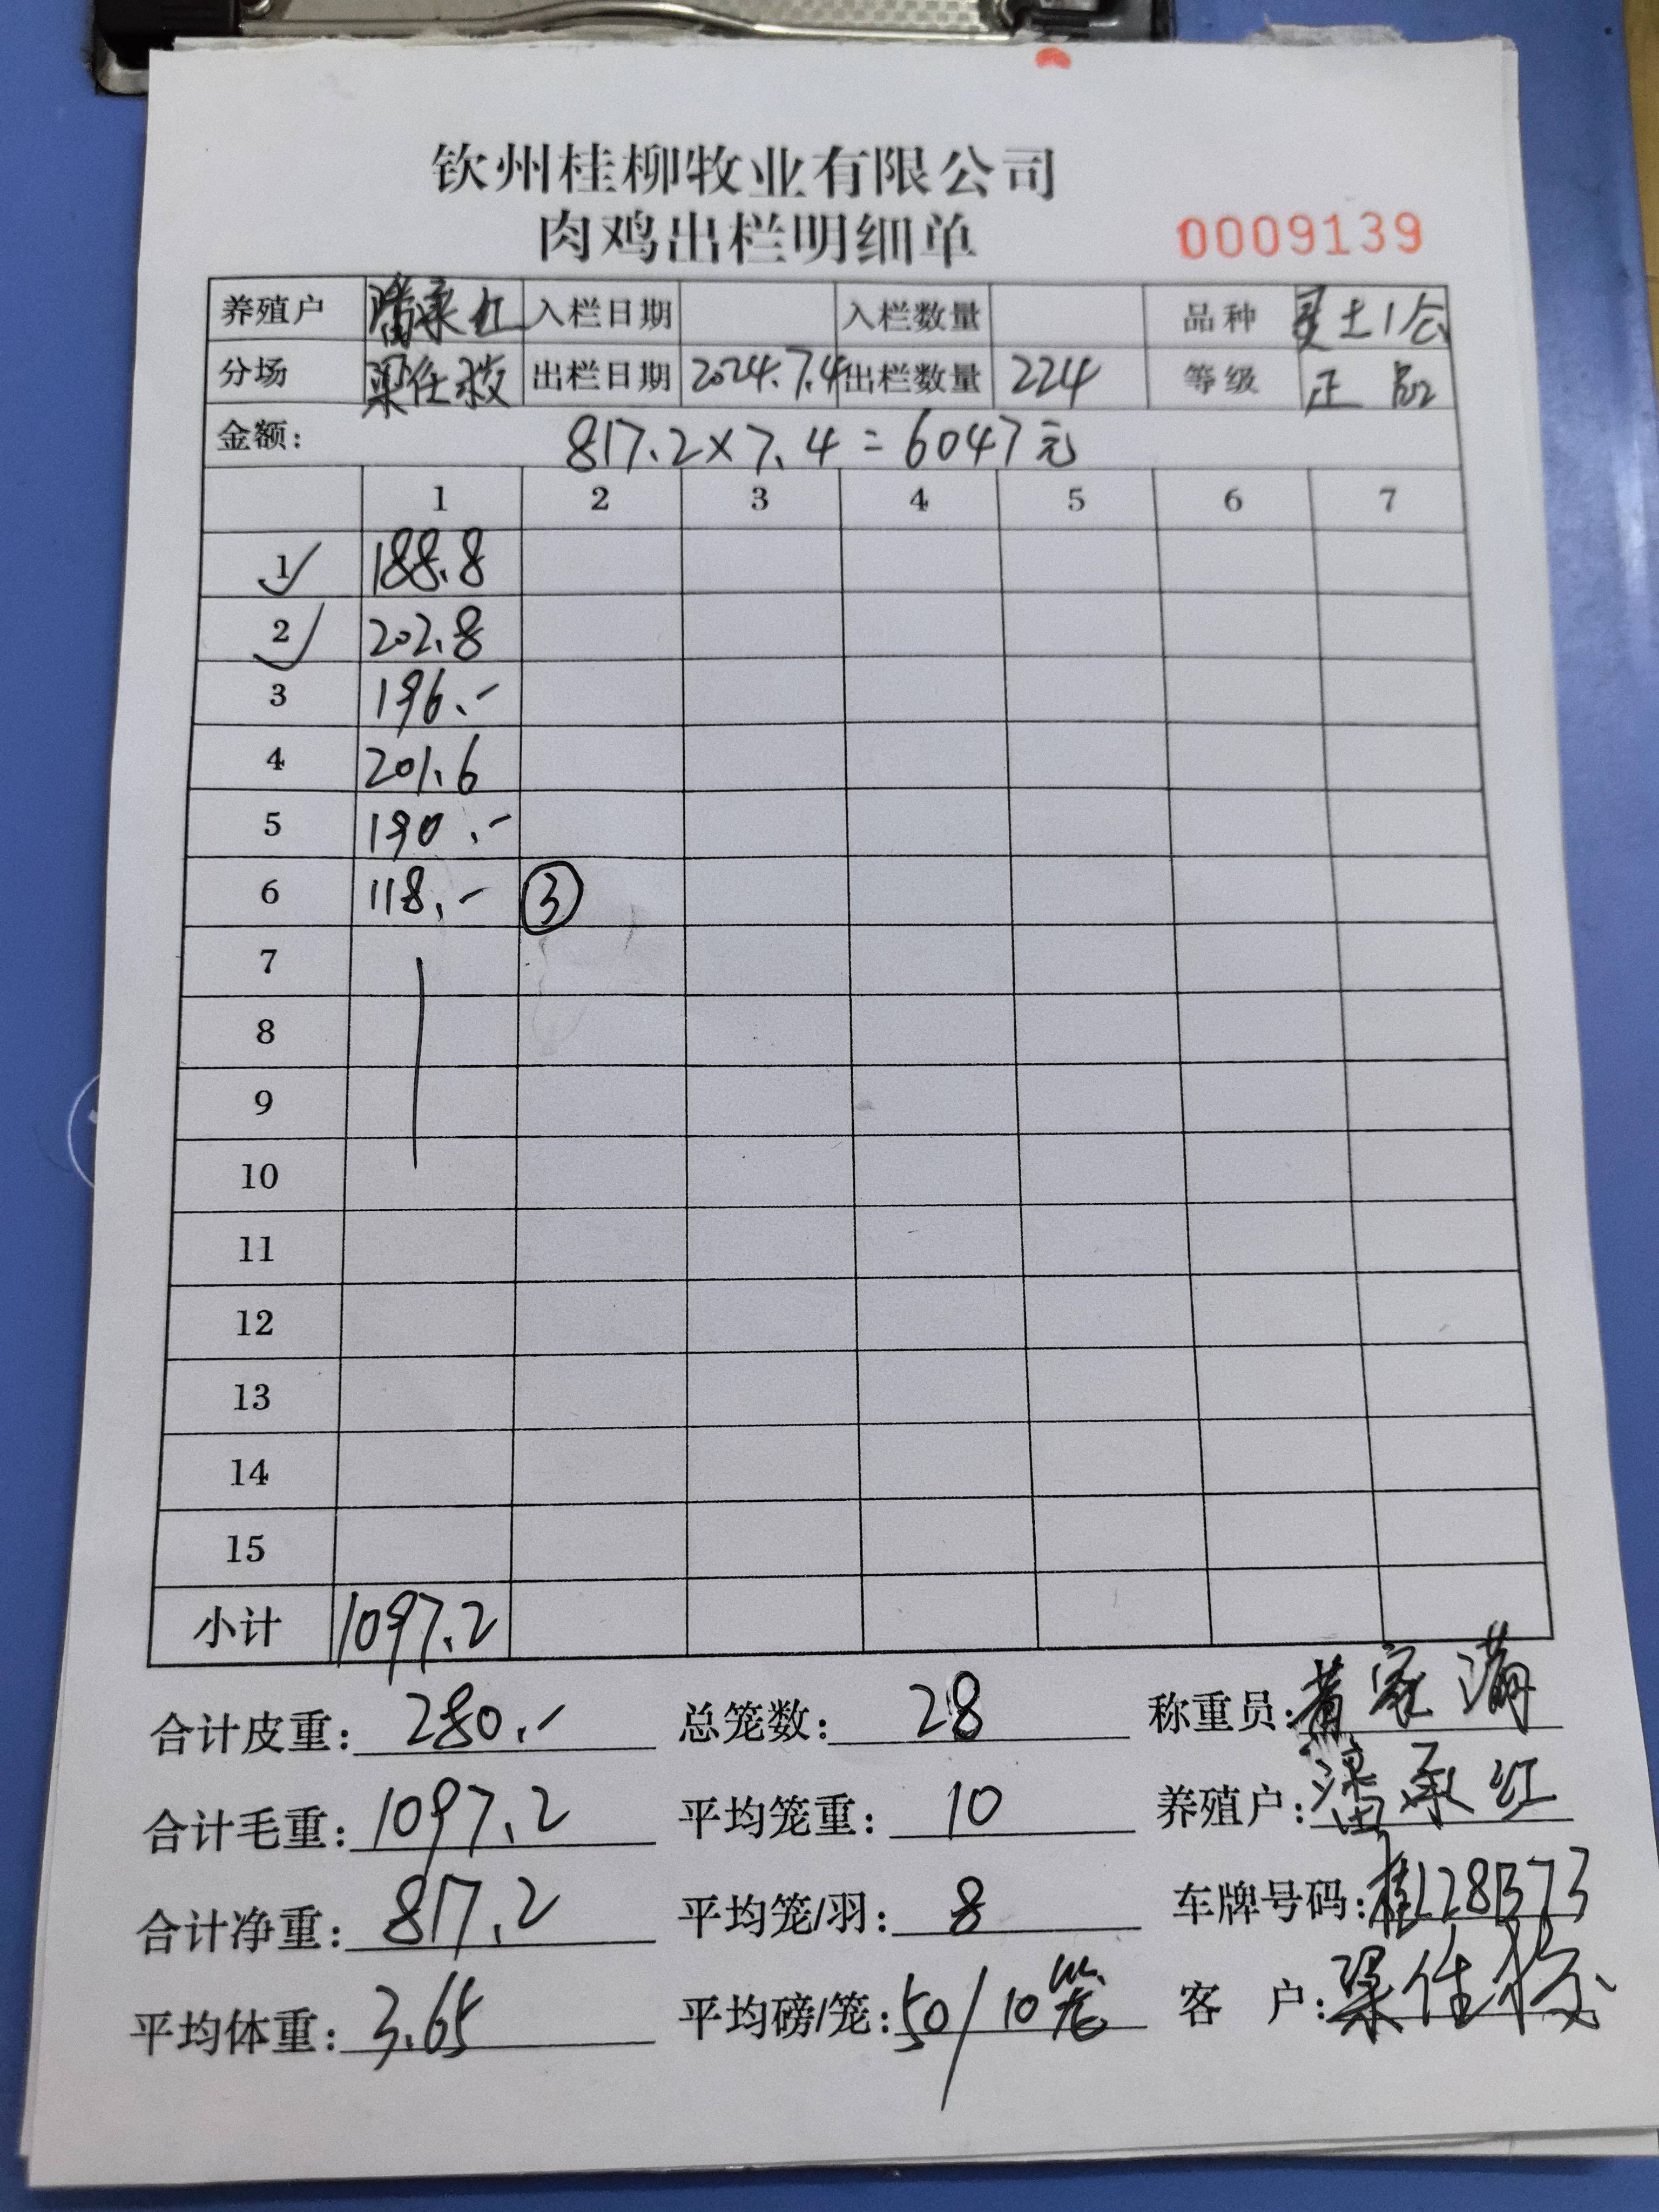 钦州桂柳牧业有限公司
肉鸡出栏明细单
0009139
养殖户 潘承红 入栏日期 入栏数量 品种 土1
分场 梁任 出栏日期 2024.7.4 出栏数量 224 等级 正品
金额: 817.2×7.4=6047元
1 2 3 4 5 6 7
1 188.8
2 202.8
3 196.-
4 201.6
5 190.-
6 118.- ③
7
8
9
10
11
12
13
14
15
小计 1097.2
合计皮重: 280.- 总笼数: 28 称重员: 黄家满
合计毛重: 1097.2 平均笼重: 10 养殖户: 潘承红
合计净重: 817.2 平均笼/羽: 8 车牌号码: 桂L28B73
平均体重: 3.65 平均磅/笼: 50/10笼 客 户: 梁任